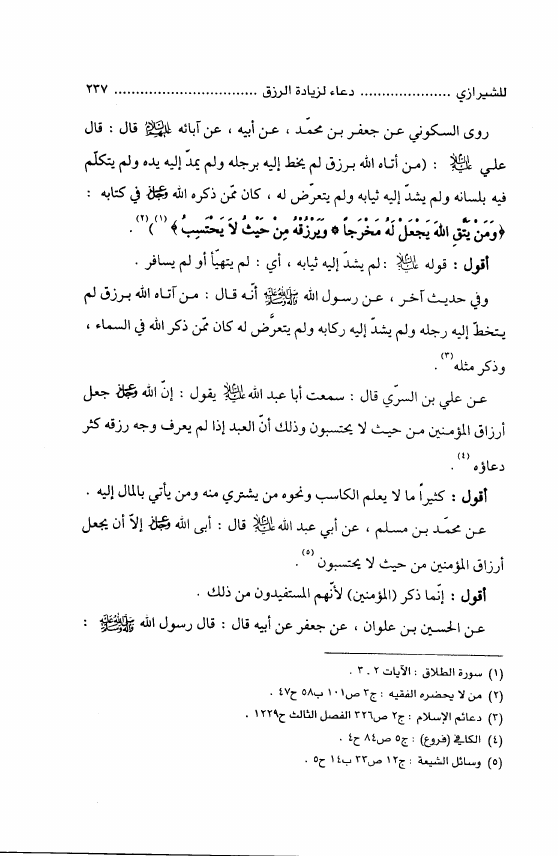 للشيرازي ..................... دعاء لزيادة الرزق ................................. ٢٣٧
روى السكوني عن جعفر بن محمّد ، عن أبيه ، عن آبائه عليهم السلام قال : قال
علي عليه السلام : (من أتاه الله برزق لم يخط إليه برجله ولم يمدّ إليه يده ولم يتكلّم
فيه بلسانه ولم يشدّ إليه ثيابه ولم يتعرّض له ، كان ممّن ذكره الله عزوجل في كتابه :
﴿وَمَنْ يَتَّقِ اللهَ يَجْعَلْ لَهُ مَخْرَجاً * وَيَرْزُقْهُ مِنْ حَيْثُ لاَ يَحْتَسِبُ﴾ (١))(٢).
أقول : قوله عليه السلام : لم يشدّ إليه ثيابه ، أي : لم يتهيّأ أو لم يسافر .
وفي حديث آخر ، عن رسول الله صلى الله عليه وآله وسلم أنّه قال : من آتاه الله برزق لم
يتخطّ إليه رجله ولم يشدّ إليه ركابه ولم يتعرَّض له كان ممّن ذكر الله في السماء ،
وذكر مثله(٣).
عن علي بن السرّي قال : سمعت أبا عبد الله عليه السلام يقول : إنّ الله عزوجل جعل
أرزاق المؤمنين من حيث لا يحتسبون وذلك أنّ العبد إذا لم يعرف وجه رزقه كثر
دعاؤه(٤).
أقول : كثيراً ما لا يعلم الكاسب ونحوه من يشتري منه ومن يأتي بالمال إليه .
عن محمّد بن مسلم ، عن أبي عبد الله عليه السلام قال : أبى الله عزوجل إلاّ أن يجعل
أرزاق المؤمنين من حيث لا يحتسبون(٥).
أقول : إنّما ذكر (المؤمنين) لأنّهم المستفيدون من ذلك .
عن الحسين بن علوان ، عن جعفر عن أبيه قال : قال رسول الله صلى الله عليه وآله وسلم :
(١) سورة الطلاق : الآيات ٢ ـ ٣ .
(٢) من لا يحضره الفقيه : ج٣ ص١٠١ ب٥٨ ح٤٧ .
(٣) دعائم الإسلام : ج٢ ص٣٢٦ الفصل الثالث ح١٢٢٩ .
(٤) الكافي (فروع) : ج٥ ص٨٤ ح٤ .
(٥) وسائل الشيعة : ج١٢ ص٣٣ ب١٤ ح٥ .